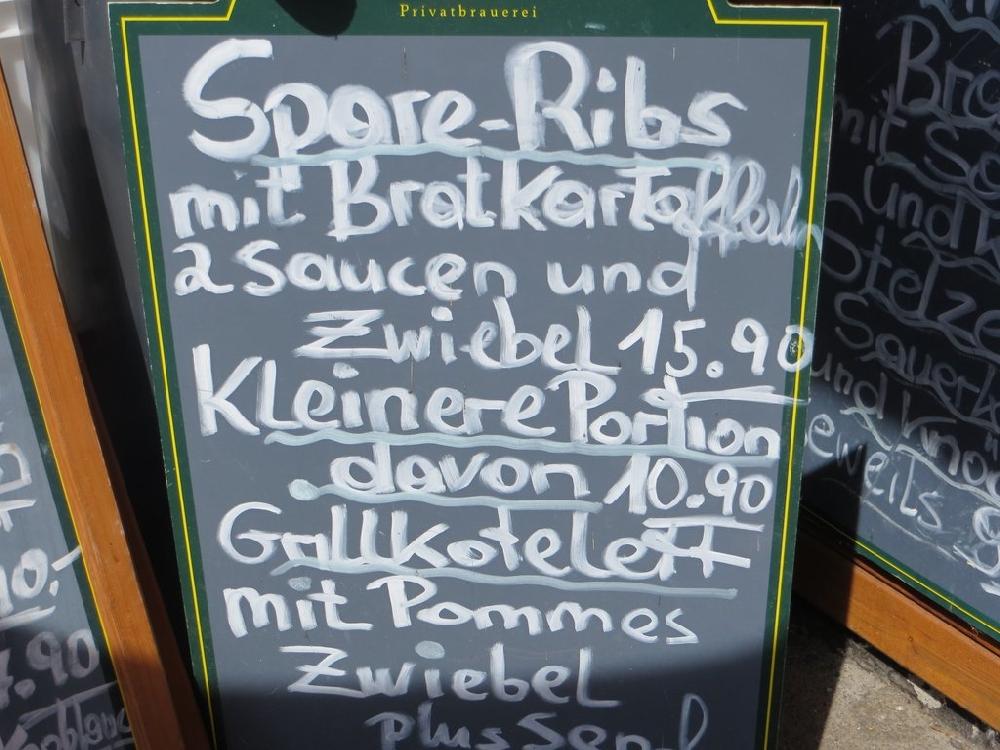 Privatbrauerei
Spare-Ribs
mit Bratkartoffeln
2 Saucen und
Zwiebel 15.90
Kleinere Portion
davon 10.90
Grillkotelett
mit Pommes
Zwiebel
plus Senf
10,-
7.90
mit
und
Stelze
und
jeweils